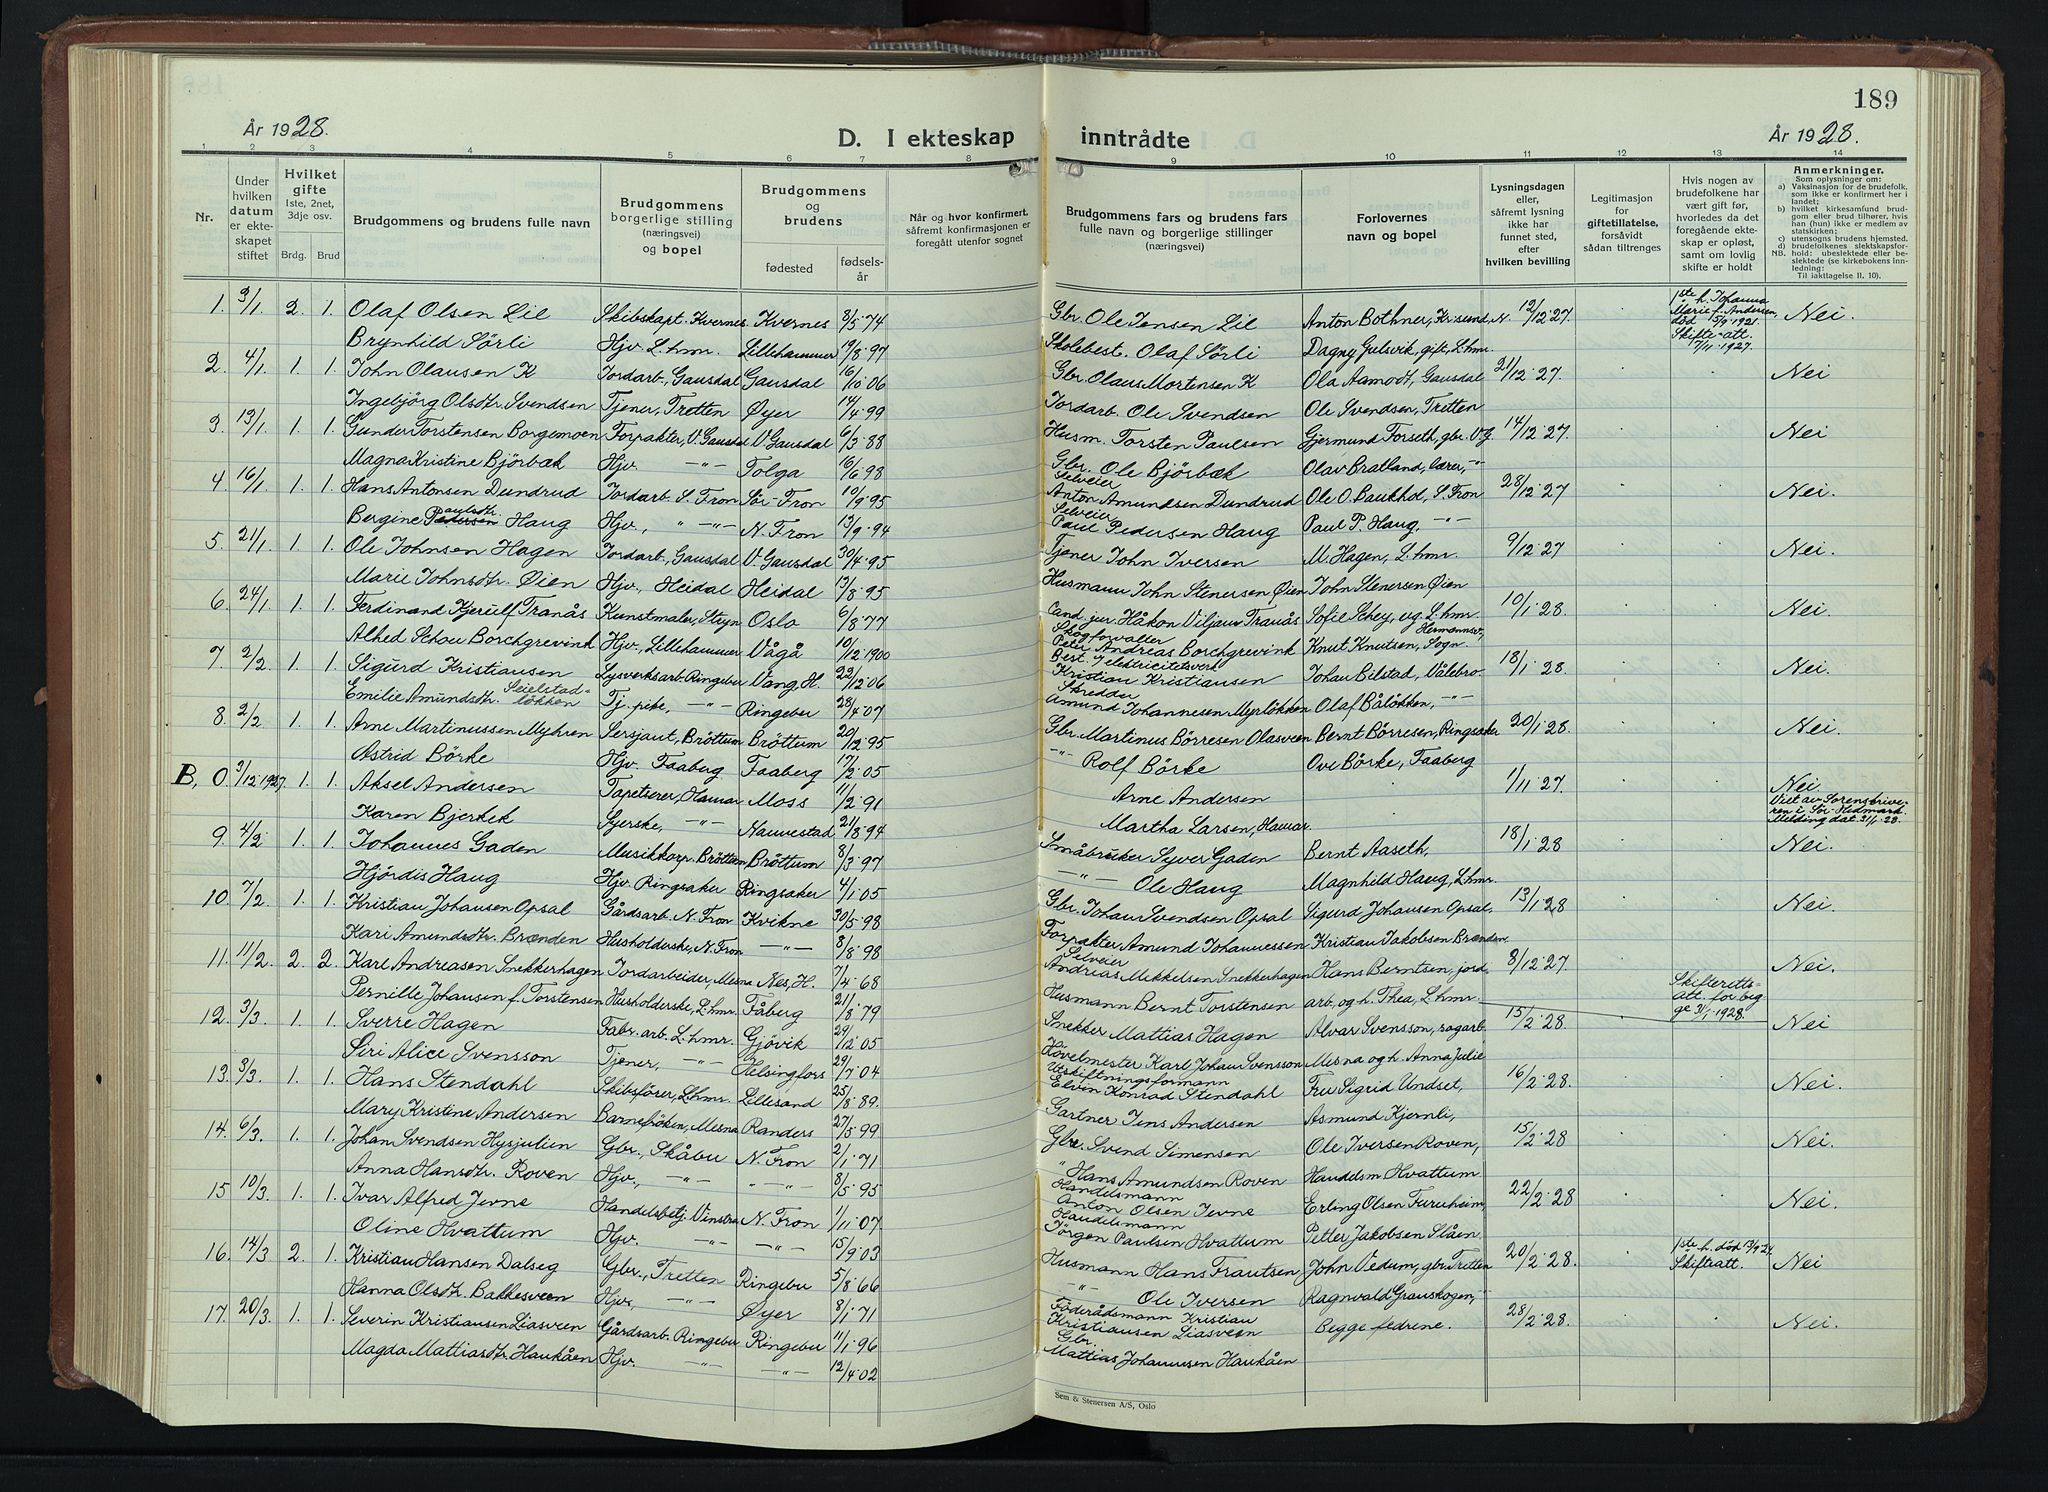 189
År 1928.
D. I ekteskap inntrådte
År 1928.
1 2 3 4 5 6 7 8 9 10 11 12 13 14
Nr.
Under hvilken datum er ekteskapet stiftet
Hvilket gifte 1ste, 2net, 3dje osv.
Brdg. Brud
Brudgommens og brudens fulle navn
Brudgommens borgerlige stilling (næringsvei) og bopel
Brudgommens og brudens
fødested fødselsår
Når og hvor konfirmert, såfremt konfirmasjonen er foregått utenfor sognet
Brudgommens fars og brudens fars fulle navn og borgerlige stillinger (næringsvei)
Forlovernes navn og bopel
Lysningsdagen eller, såfremt lysning ikke har funnet sted, efter hvilken bevilling
Legitimasjon for giftetillatelse, forsåvidt sådan tiltrenges
Hvis nogen av brudefolkene har vært gift før, hvorledes da det foregående ekteskap er opløst, samt om lovlig skifte er holdt
Anmerkninger.
Som oplysninger om:
a) Vaksinasjon for de brudefolk, som ikke er konfirmert her i landet;
b) hvilket kirkesamfund brudgom eller brud tilhører, hvis han (hun) ikke er medlem av statskirken;
c) utensogns brudens hjemsted.
d) brudefolkenes slektskapsforhold: ubeslektede eller beslektede (se kirkebokens innledning:
NB. Til iakttagelse II. 10).
1. 3/1 2. 1. Olaf Olsen Lil Skibskapt. Kvernes Kvernes 8/5 74 Gbr. Ole Jensen Lil Anton Bothner, Kr.sund N. 12/12 27. 1ste h. Johanna Marie f. Andersen, död 15/9 1921. Skifte-att. 17/11 1927. Nei.
Brynhild Sörli Hjv. L.hmr. Lillehammer 19/8 97 Skolebest. Olaf Sörli Dagny Gulsvik, gift, L.hmr.
2. 4/1 1. 1. John Olausen K Jordarb., Gausdal Gausdal 16/10 06 Gbr. Olaus Mortensen K Ola Aamodt, Gausdal 21/12 27. Nei
Ingebjörg Olsdtr. Svendsen Tjener, Tretten Øyer 14/4 99 Jordarb. Ole Svendsen Ole Svendsen, Tretten
3. 13/1 1. 1. Gunder Torstensen Borgemoen Forpakter, V. Gausdal V. Gausdal 6/3 88 Husm. Torsten Paulsen Gjermund Forseth, gbr. V.G. 14/12 27. Nei
Magna Kristine Björbæk Hjv. -"- Tolga 16/6 98 Gbr. Ole Björbæk Olav Bratland, lærer, -"-
4. 16/1 1. 1. Hans Antonsen Dundrud Jordarb. S. Fron Sör-Fron 10/9 95 Selveier Anton Amundsen Dundrud Ole O. Baukhol, S. Fron 28/12 27 Nei.
Bergine Paulsdtr. Haug Hjv., " -"- N. Fron 13/9 94 Selveier Paul Pedersen Haug Paul P. Haug, -"-
5. 21/1 1. 1. Ole Johnsen Hagen Jordarb., Gausdal V. Gausdal 30/4 95 Tjener John Iversen M. Hagen, L.hmr. 9/12 27 Nei.
Marie Johnsdtr. Øien Hjv., Heidal Heidal 13/8 95 Husmann John Stenersen Øien John Stenersen Øien
6. 24/1 1. 1. Ferdinand Kjerulf Tranås Kunstmaler, Stryn Oslo 6/8 77 Cand. jur. Håkon Viljam Tranås Sofie Schey, ug. L.hmr. 10/1 28. Nei.
Alhed Schou Borchgrevink Hjv., Lillehammer Vågå 10/12 1900 Skogforvalter Peter Andreas Borchgrevink Knut Knutsen, Hermannsv., Sogn
7. 2/2 1. 1. Sigurd Kristiansen Lysverksarb. Ringebu Vang H. 22/12 06 Best. v/ elektricitetsverk Kristian Kristiansen Johan Bilstad, Vålebro 18/1 28. Nei.
Emilie Amundsdtr. Seielstadlökken Tj. pike, -"- Ringebu 28/4 07 Skredder Amund Johannesen Myrlökken Olaf Bålökken, -"-
8. 2/2 1. 1. Arne Martinussen Myhren Sersjant, Bröttum Bröttum 20/12 95 Gbr. Martinus Börresen Olasveen Bernt Börresen, Ringsaker 20/1 28. Nei.
Astrid Börke Hjv. Faaberg Faaberg 17/2 05 -"- Rolf Börke Ove Börke, Faaberg
B. 0. 3/12 1927. 1. 1. Aksel Andersen Tapetserer, Hamar Moss 11/2 91 Arne Andersen 1/11 27. Nei. Viet av Sorenskriveren i Sör-Hedmark. Melding dat. 21/1 28.
Karen Bjerkek Syerske, -"- Nannestad 21/8 94 Martha Larsen, Hamar.
9. 4/2 1. 1. Johannes Gaden Musikkorp. Bröttum Bröttum 8/3 97 Småbruker Syver Gaden Bernt Aaseth, 18/1 28 Nei.
Hjördis Haug Hjv. Ringsaker Ringsaker 4/1 05 -"- Ole Haug Magnhild Haug, L.hmr.
10. 7/2 1. 1. Kristian Johansen Opsal Gårdsarb. N. Fron Kvikne 30/5 98 Gbr. Johan Svendsen Opsal Sigurd Johansen Opsal. 13/1 28 Nei.
Kari Amundsdtr. Brænden Husholderske, N. Fron -"- 8/8 98 Forpakter Amund Johannessen Kristian Jakobsen Brænden.
11. 11/2 2. 2. Karl Andreasen Snekkerhagen Jordarbeider, Mesna Nes, H. 7/4 68 Selveier Andreas Mikkelsen Snekkerhagen Hans Berntsen, jord. 8/12 27. Skifterettsatt. for begge 3/1 1928. Nei.
Pernille Johansen f. Torstensen Husholderske, L.hmr. Fåberg 21/8 79 Husmann Bernt Torstensen arb. og h. Thea, L.hmr.
12. 3/3 1. 1. Sverre Hagen Fabr. arb. L.hmr. Gjövik 29/12 05 Snekker Mattias Hagen Alvar Svensson, sagarb. 15/2 28. Nei
Siri Alice Svensson Tjener, -"- Helsingfors 29/7 04 Hövelmester Karl Johan Svensson Mesna og h. Anna Julie
13. 3/3 1. 1. Hans Stendahl Skibsförer, L.hmr. Lillesand 25/8 89. Utskiftningsformann Elvin Konrad Stendahl Fru Sigrid Undset, 16/2 28. Nei.
Mary Kristine Andersen Barnefröken, Mesna Randers 27/5 99 Gartner Jens Andersen Asmund Kjernli,
14. 6/3 1. 1. Johan Svendsen Hysjulien Gbr., Skåbu N. Fron 2/1 71 Gbr. Svend Simensen Ole Iversen Roven, 15/2 28 Nei.
Anna Hansdtr. Roven Hjv., -"- " -"- 8/5 95 " Hans Amundsen Roven Handelsm. Hvattum
15 10/3 1. 1. Ivar Alfred Jevne Handelsbetj. Vinstra N. Fron 1/11 07 Handelsmann Anton Olsen Jevne Erling Olsen Furuheim, 22/2 28 Nei.
Oline Hvattum Hjv. -"- -"- 15/9 03 Handelsmann Törgen Paulsen Hvattum Petter Jakobsen Slåen
16. 14/3 2. 1. Kristian Hansen Dalseg Gbr., Tretten Ringebu 5/8 66 Husmann Hans Frantsen John Vedum, gbr. Tretten 20/2 28. 1ste h. död 13/9 24. Skifteatt. Nei
Hanna Olsdtr. Bakkesveen Hjv., -"- Øyer 8/1 71 -"- Ole Iversen Ragnvald Granskogen, -"-
17. 20/3 1. 1. Severin Kristiansen Liasveen Gårdsarb. Ringebu Ringebu 11/1 96 Föderådsmann Kristian Kristiansen Liasveen Begge fedrene. 28/2 28. Nei.
Magda Mattiasdtr. Haukåen Hjv. -"- -"- 12/4 02 Gbr. Mattias Johannsen Haukåen
Sem & Stenersen A/S, Oslo